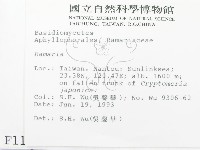 國立自然科學博物館
NATIONAL MUSEUM OF NATURAL SCIENCE
TAICHUNG, TAIWAN, R.O.CHINA
Basidiomycetes
Aphyllophorales, Ramariaceae
Ramaria
Loc.: Taiwan. Nantou: Hsulinkees;
23.38N, 121.47E; alt. 1600 m,
on fallen of Cryptomeria
japonica.
Col.: S.H. Wu No. Wu 9306 62
Date: Jun. 19, 1993
Det.: S.H. Wu
F11